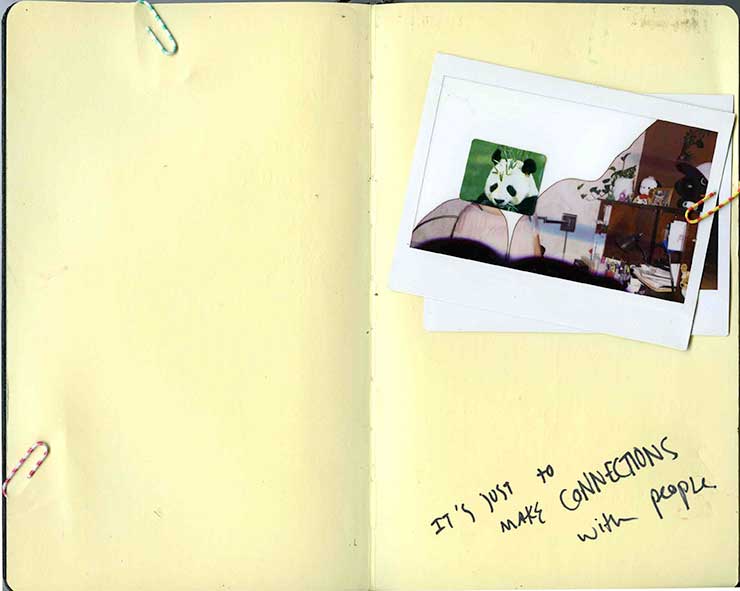 IT'S JUST TO
MAKE CONNECTIONS
with people